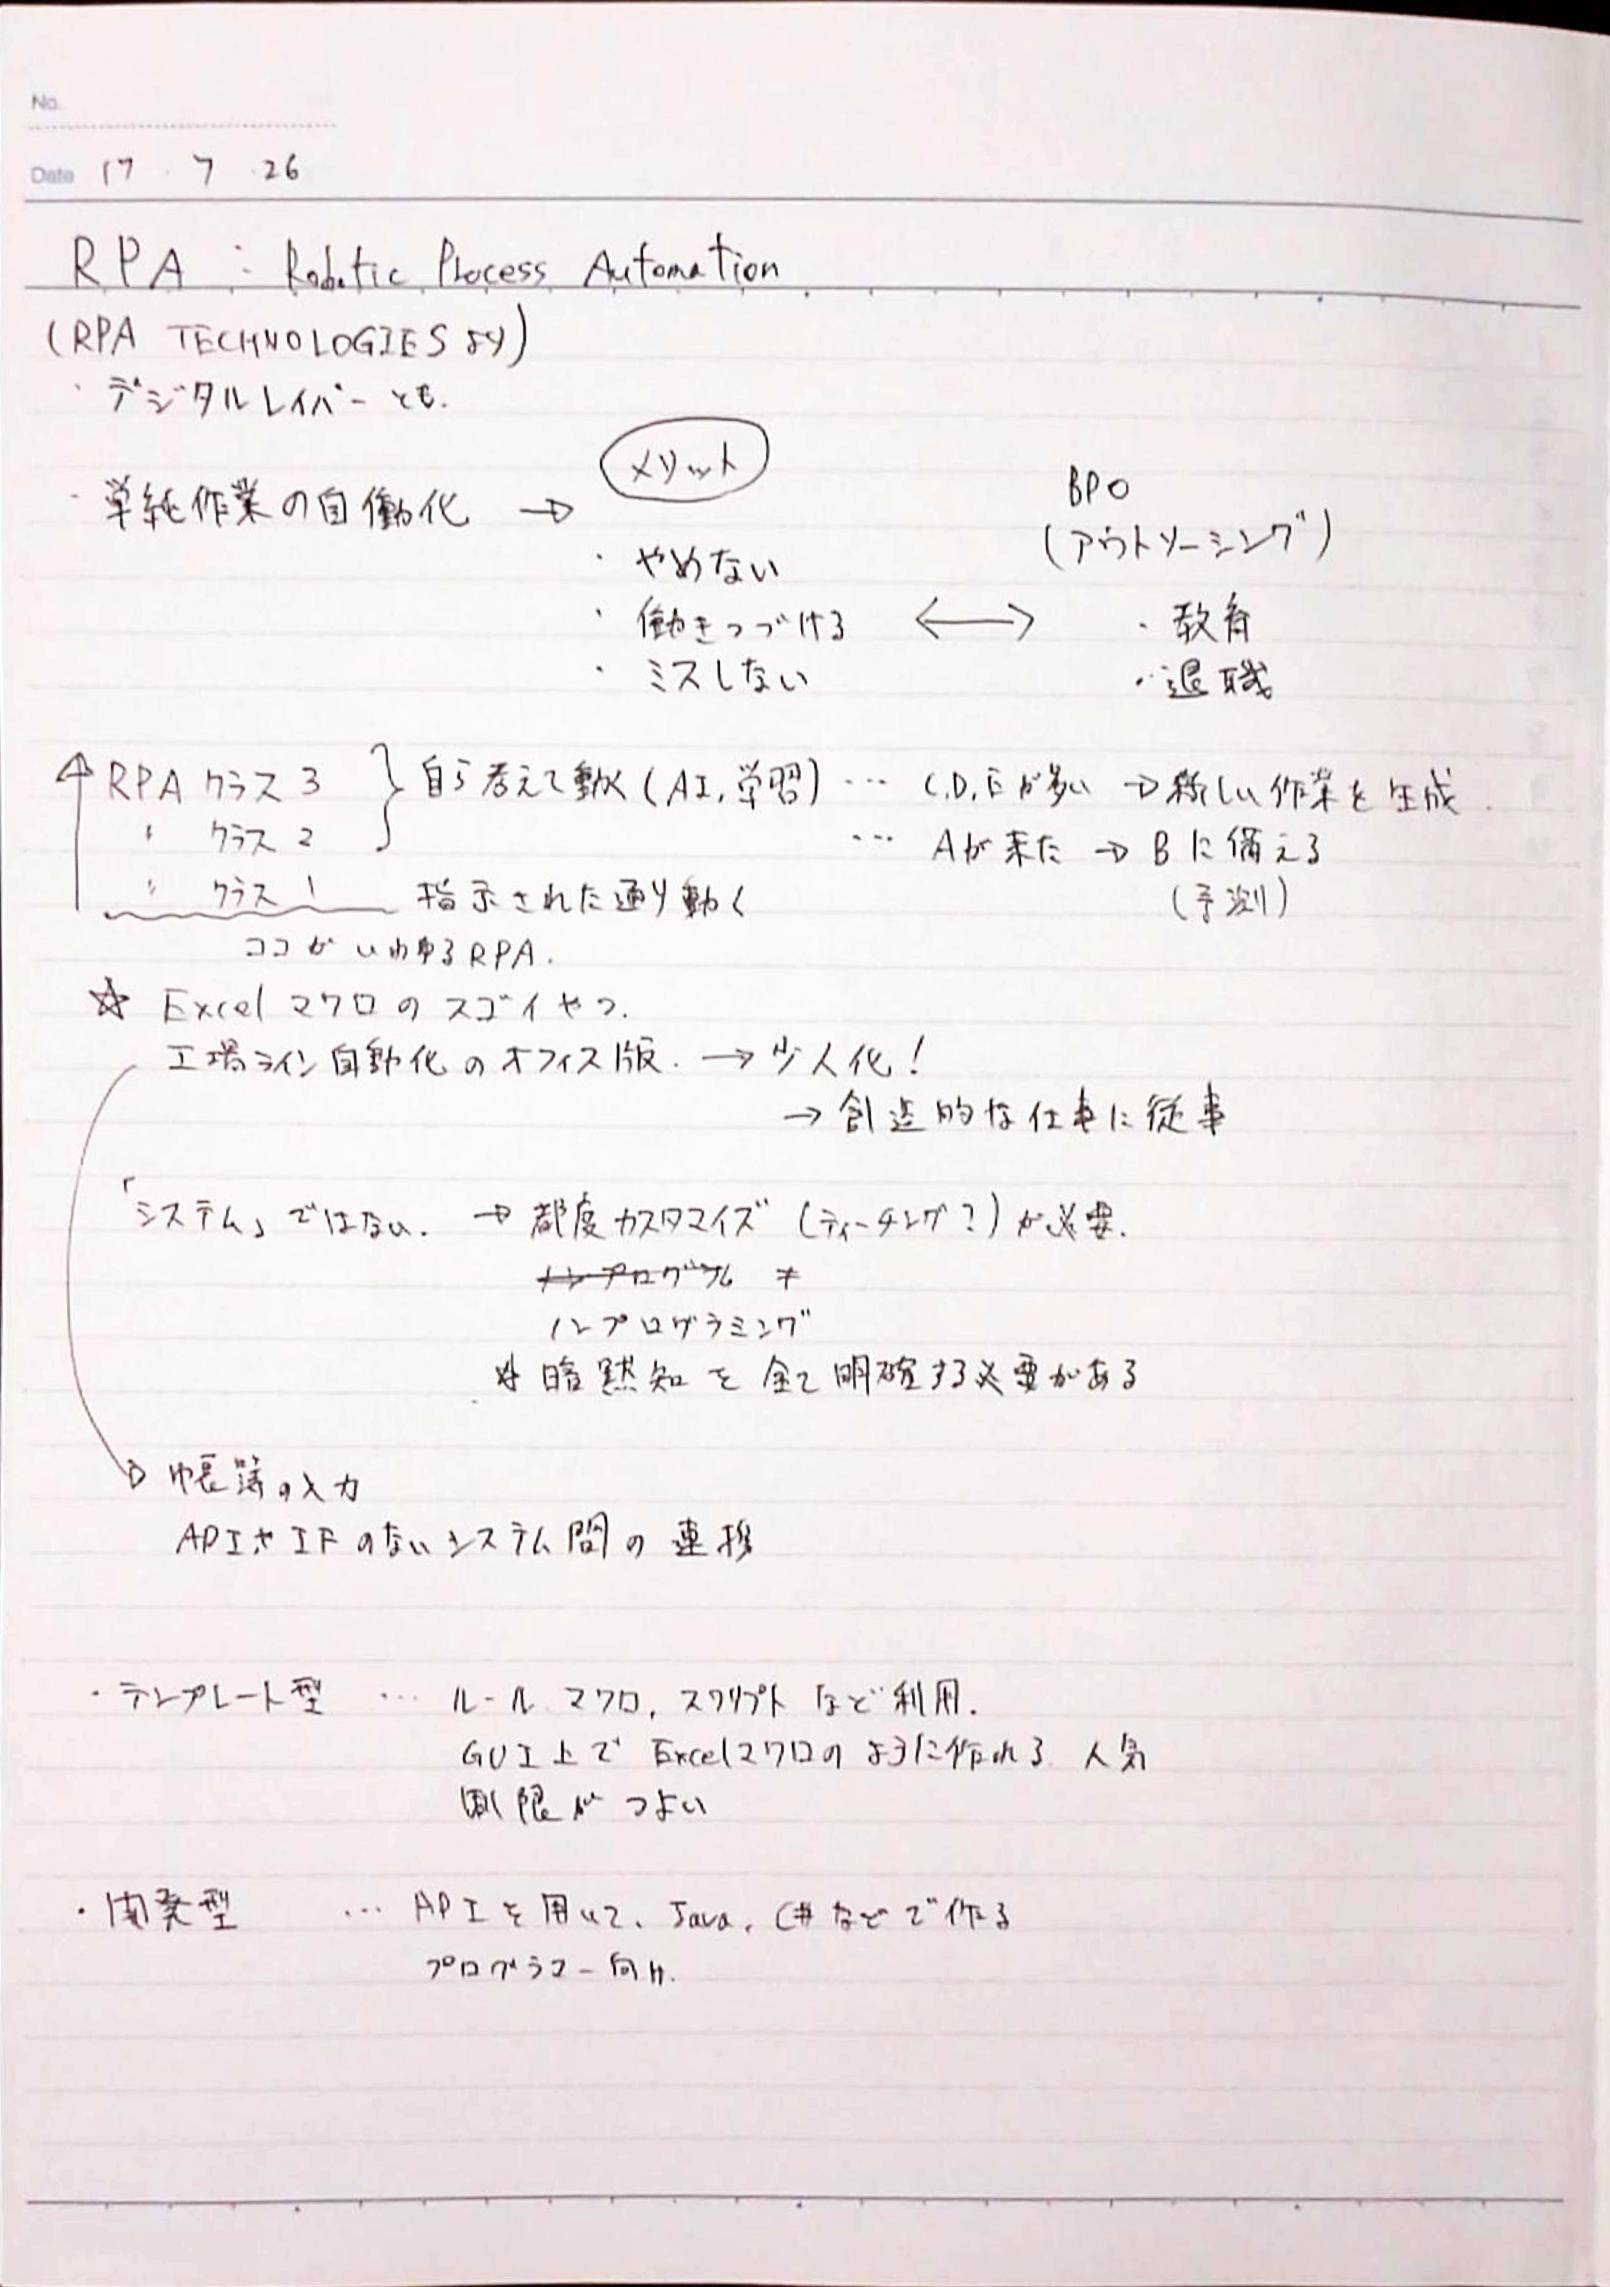 No.
Date 17 . 7 . 26
RPA : Robotic Process Automation
(RPA TECHNOLOGIES より)
・デジタルレイバーとも.
・単純作業の自働化 →
メリット
・やめない
・働きつづける
・ミスしない
↔
BPO
(アウトソーシング)
・教育
・退職
RPA クラス3 } 自ら考えて動く (AI, 学習) … C,D,Eが多い → 新しい作業を生成.
〃 クラス2 … Aが来た → Bに備える
(予測)
〃 クラス1 指示された通り動く
ココがいわゆるRPA.
☆ Excel マクロのスゴイやつ.
工場ライン自動化のオフィス版. → 少人化!
→ 創造的な仕事に従事
「システム」ではない. → 都度カスタマイズ (ティーチング?) が必要.
ノンプログラム ≠
ノンプログラミング
☆ 暗黙知を全て明確する必要がある
帳簿の入力
APIやIFのないシステム間の連携
・テンプレート型 … ルール マクロ, スクリプトなど利用.
GUI上で Excelマクロのように作れる 人気
制限がつよい
・開発型 … APIを用いて、Java, C#などで作る
プログラマー向け.